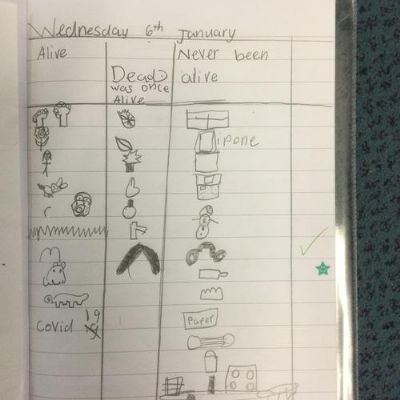 Wednesday 6th January
Alive
Dead
was once
Alive
Never been
alive
ipone
Paper
Covid 19